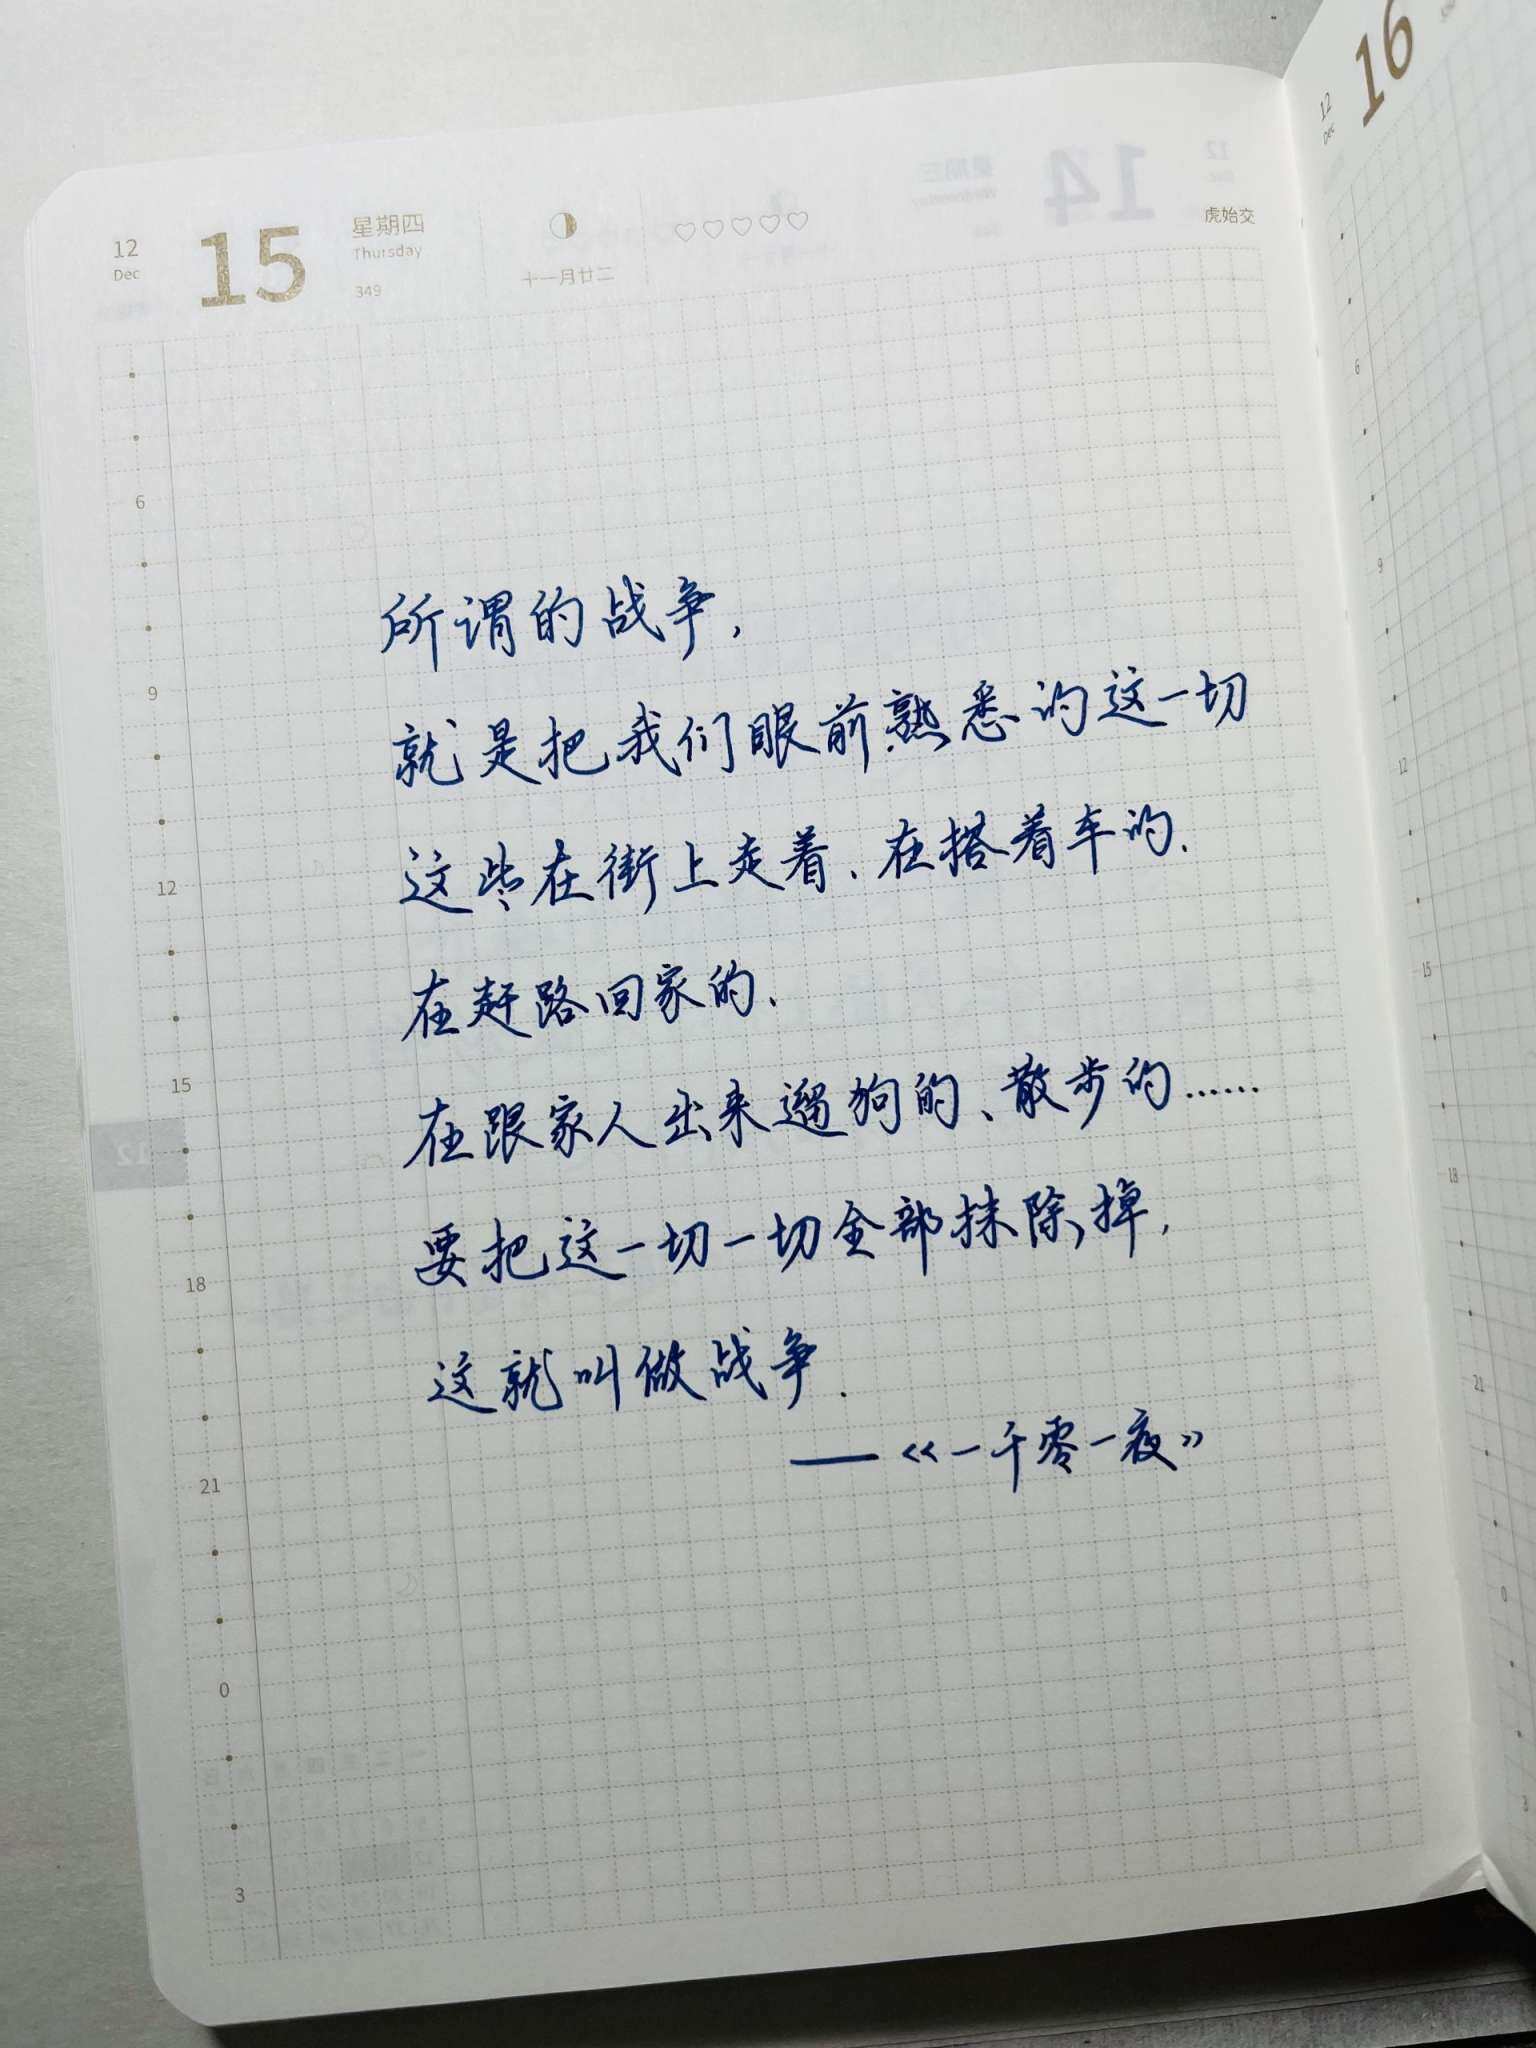 12
Dec
15
星期四
Thursday
349
十一月廿二
虎始交
12
Dec
16
所谓的战争,
就是把我们眼前熟悉的这一切
这些在街上走着、在搭着车的、
在赶路回家的、
在跟家人出来遛狗的、散步的……
要把这一切一切全部抹除掉,
这就叫做战争.
——《一千零一夜》
6
9
12
15
18
21
0
3
6
9
12
15
18
21
0
3